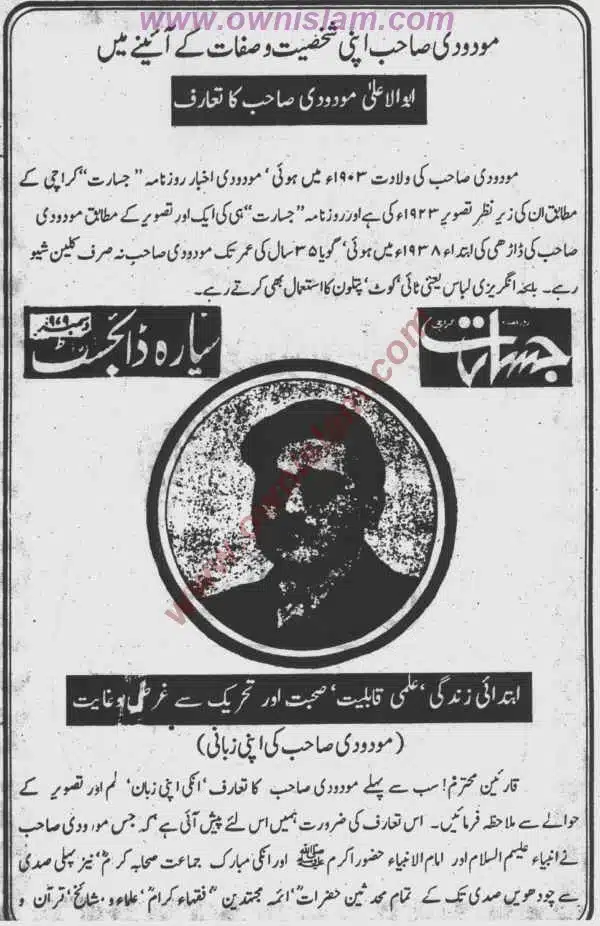 www.ownislam.com
مودودی صاحب اپنی شخصیت و صفات کے آئینے میں
ابوالاعلیٰ مودودی صاحب کا تعارف
مودودی صاحب کی ولادت ۱۹۰۳ء میں ہوئی، مودودی اخبار روزنامہ "جسارت" کراچی کے
مطابق ان کی زیر نظر تصویر ۱۹۲۳ء کی ہے اور روزنامہ "جسارت" ہی کی ایک اور تصویر کے مطابق مودودی
صاحب کی ڈاڑھی کی ابتداء ۱۹۳۸ء میں ہوئی، گویا ۳۵ سال کی عمر تک مودودی صاحب نہ صرف کلین شیو
رہے۔ بلکہ انگریزی لباس یعنی ٹائی، کوٹ، پتلون کا استعمال بھی کرتے رہے۔
جسارت کراچی
سیارہ ڈائجسٹ دسمبر ۱۹۷۹
www.ownislam.com
ابتدائی زندگی، علمی قابلیت، صحبت اور تحریک سے غرض وغایت
(مودودی صاحب کی اپنی زبانی)
قارئین محترم! سب سے پہلے مودودی صاحب کا تعارف، انکی اپنی زبان، قلم اور تصویر کے
حوالے سے ملاحظہ فرمائیں۔ اس تعارف کی ضرورت ہمیں اس لئے پیش آئی ہے کہ جس مودودی صاحب
نے انبیاء علیہم السلام اور امام الانبیاء حضور اکرم ﷺ اور انکی مبارک جماعت صحابہ کرامؓ، نیز پہلی صدی
سے چودھویں صدی تک کے تمام محدثین حضراتؒ، ائمہ مجتہدینؒ، فقہاء کرامؒ، علماء و مشائخؒ، قرآن و